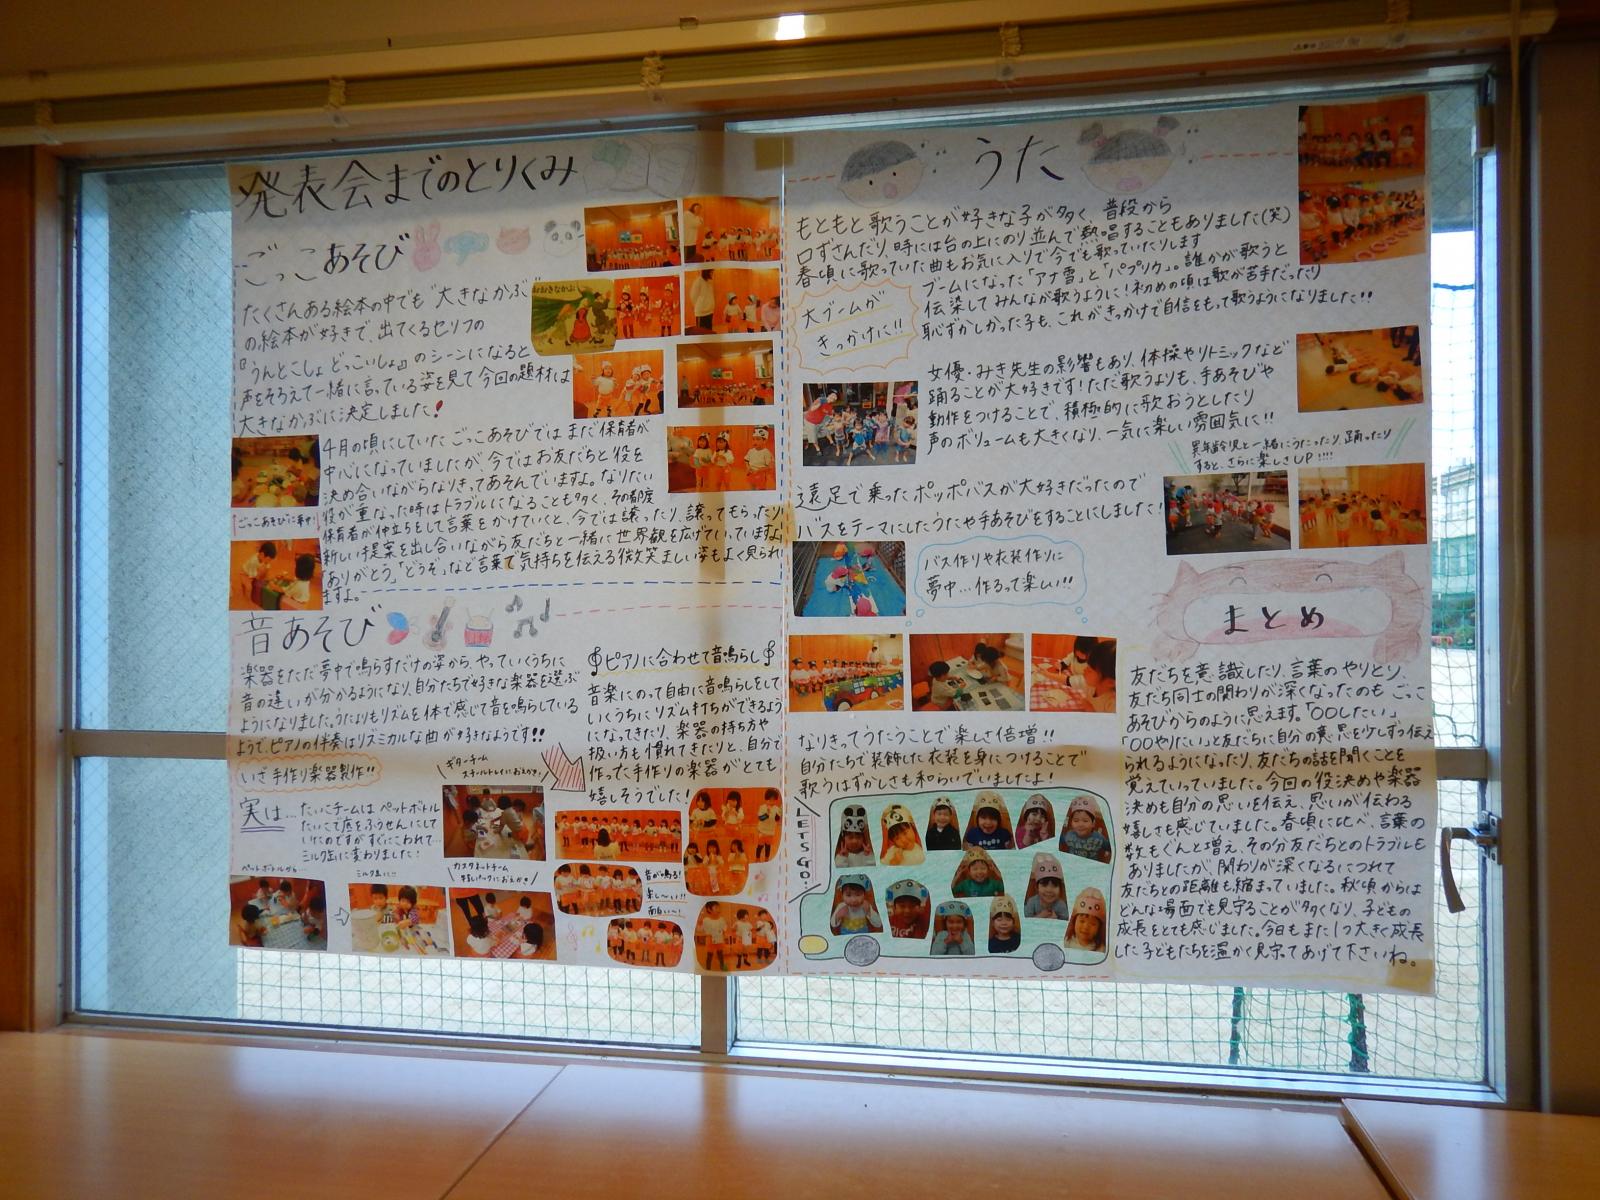 発表会までのとりくみ
ごっこあそび
たくさんある絵本の中でも"大きなかぶ"
の絵本が好きで、出てくるセリフの
『うんとこしょ どっこいしょ』のシーンになると
声をそろえて一緒に言っている姿を見て今回の題材は
大きなかぶに決定しました!
おおきなかぶ
4月の頃にしていた ごっこあそびでは まだ保育者が
中心になっていましたが、今ではお友だちと役を
決め合いながらなりきってあそんでいますよ。なりたい
役が重なった時はトラブルになることも多く、その都度
保育者が仲立ちをして言葉をかけていくと、今では譲ったり、譲ってもらったり
新しい提案を出し合いながら友だちと一緒に世界観を広げていっていますよ。
「ありがとう」「どうぞ」など言葉で気持ちを伝える微笑ましい姿もよく見られ
ますよ。
音あそび
楽器をただ夢中で鳴らすだけの姿から、やっていくうちに
音の違いが分かるようになり、自分たちで好きな楽器を選ぶ
ようになりました。うたよりもリズムを体で感じて音を鳴らしている
ようで、ピアノの伴奏はリズミカルな曲が好きなようです!!
いざ手作り楽器製作!!
実は…
たいこチームは ペットボトル
たいこで底をふうせんにして
いたのですがすぐにこわれて…
ミルク缶に変わりました!
ギターチーム
カスタネットチーム
牛乳パックにおえかき!
ペットボトルから…
ミルク缶に!!
ピアノに合わせて音鳴らし
音楽にのって自由に音鳴らしをして
いくうちにリズム打ちができるよう
になってきたり、楽器の持ち方や
扱い方も慣れてきたりと、自分で
作った手作りの楽器がとても
嬉しそうでした!
音が鳴る!
楽し〜い!!
面白い〜!
うた
もともと歌うことが好きな子が多く、普段から
口ずさんだり、時には台の上にのり並んで熱唱することもありました(笑)
春頃に歌っていた曲もお気に入りで今でも歌っていたりします
大ブームが
きっかけに!!
ブームになった「アナ雪」と「パプリカ」。誰かが歌うと
伝染してみんなが歌うように!初めの頃は歌が苦手だったり
恥ずかしかった子も、これがきっかけで自信をもって歌うようになりました!!
女優・みき先生の影響もあり、体操やリトミックなど
踊ることが大好きです!ただ歌うよりも、手あそびや
動作をつけることで、積極的に歌おうとしたり
声のボリュームも大きくなり、一気に楽しい雰囲気に!!
異年齢児と一緒にうたったり、踊ったり
すると、さらに楽しさUP!!!!
遠足で乗ったポッポバスが大好きだったので
バスをテーマにしたうたや手あそびをすることにしました!
バス作りや衣装作りに
夢中…作るって楽しい!!
なりきってうたうことで楽しさ倍増!!
自分たちで装飾した衣装を身につけることで
歌うはずかしさも和らいでいましたよ!
LET'S GO!
まとめ
友だちを意識したり、言葉のやりとり、
友だち同士の関わりが深くなったのも ごっこ
あそびからのように思えます。「〇〇したい」
「〇〇やりたい」と友だちに自分の意思を少しずつ伝え
られるようになったり、友だちの話を聞くことを
覚えていっていました。今回の役決めや楽器
決めも自分の思いを伝え、思いが伝わる
嬉しさも感じていました。春頃に比べ、言葉の
数もぐんと増え、その分友だちとのトラブルも
ありましたが、関わりが深くなるにつれて
友だちとの距離も縮まっていました。秋頃からは
どんな場面でも見守ることが多くなり、子どもの
成長をとても感じました。今日もまた1つ大きく成長
した子どもたちを温かく見守ってあげて下さいね。